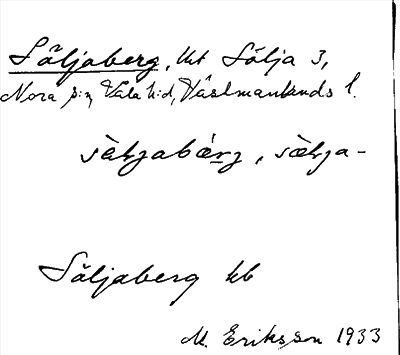 Säljaberg, lht Sälja 3,
Nora s:n, Våla h:d, Västmanlands l.
sàljabǽrj, sæ̀lja-
Säljaberg kb
M. Eriksson 1933